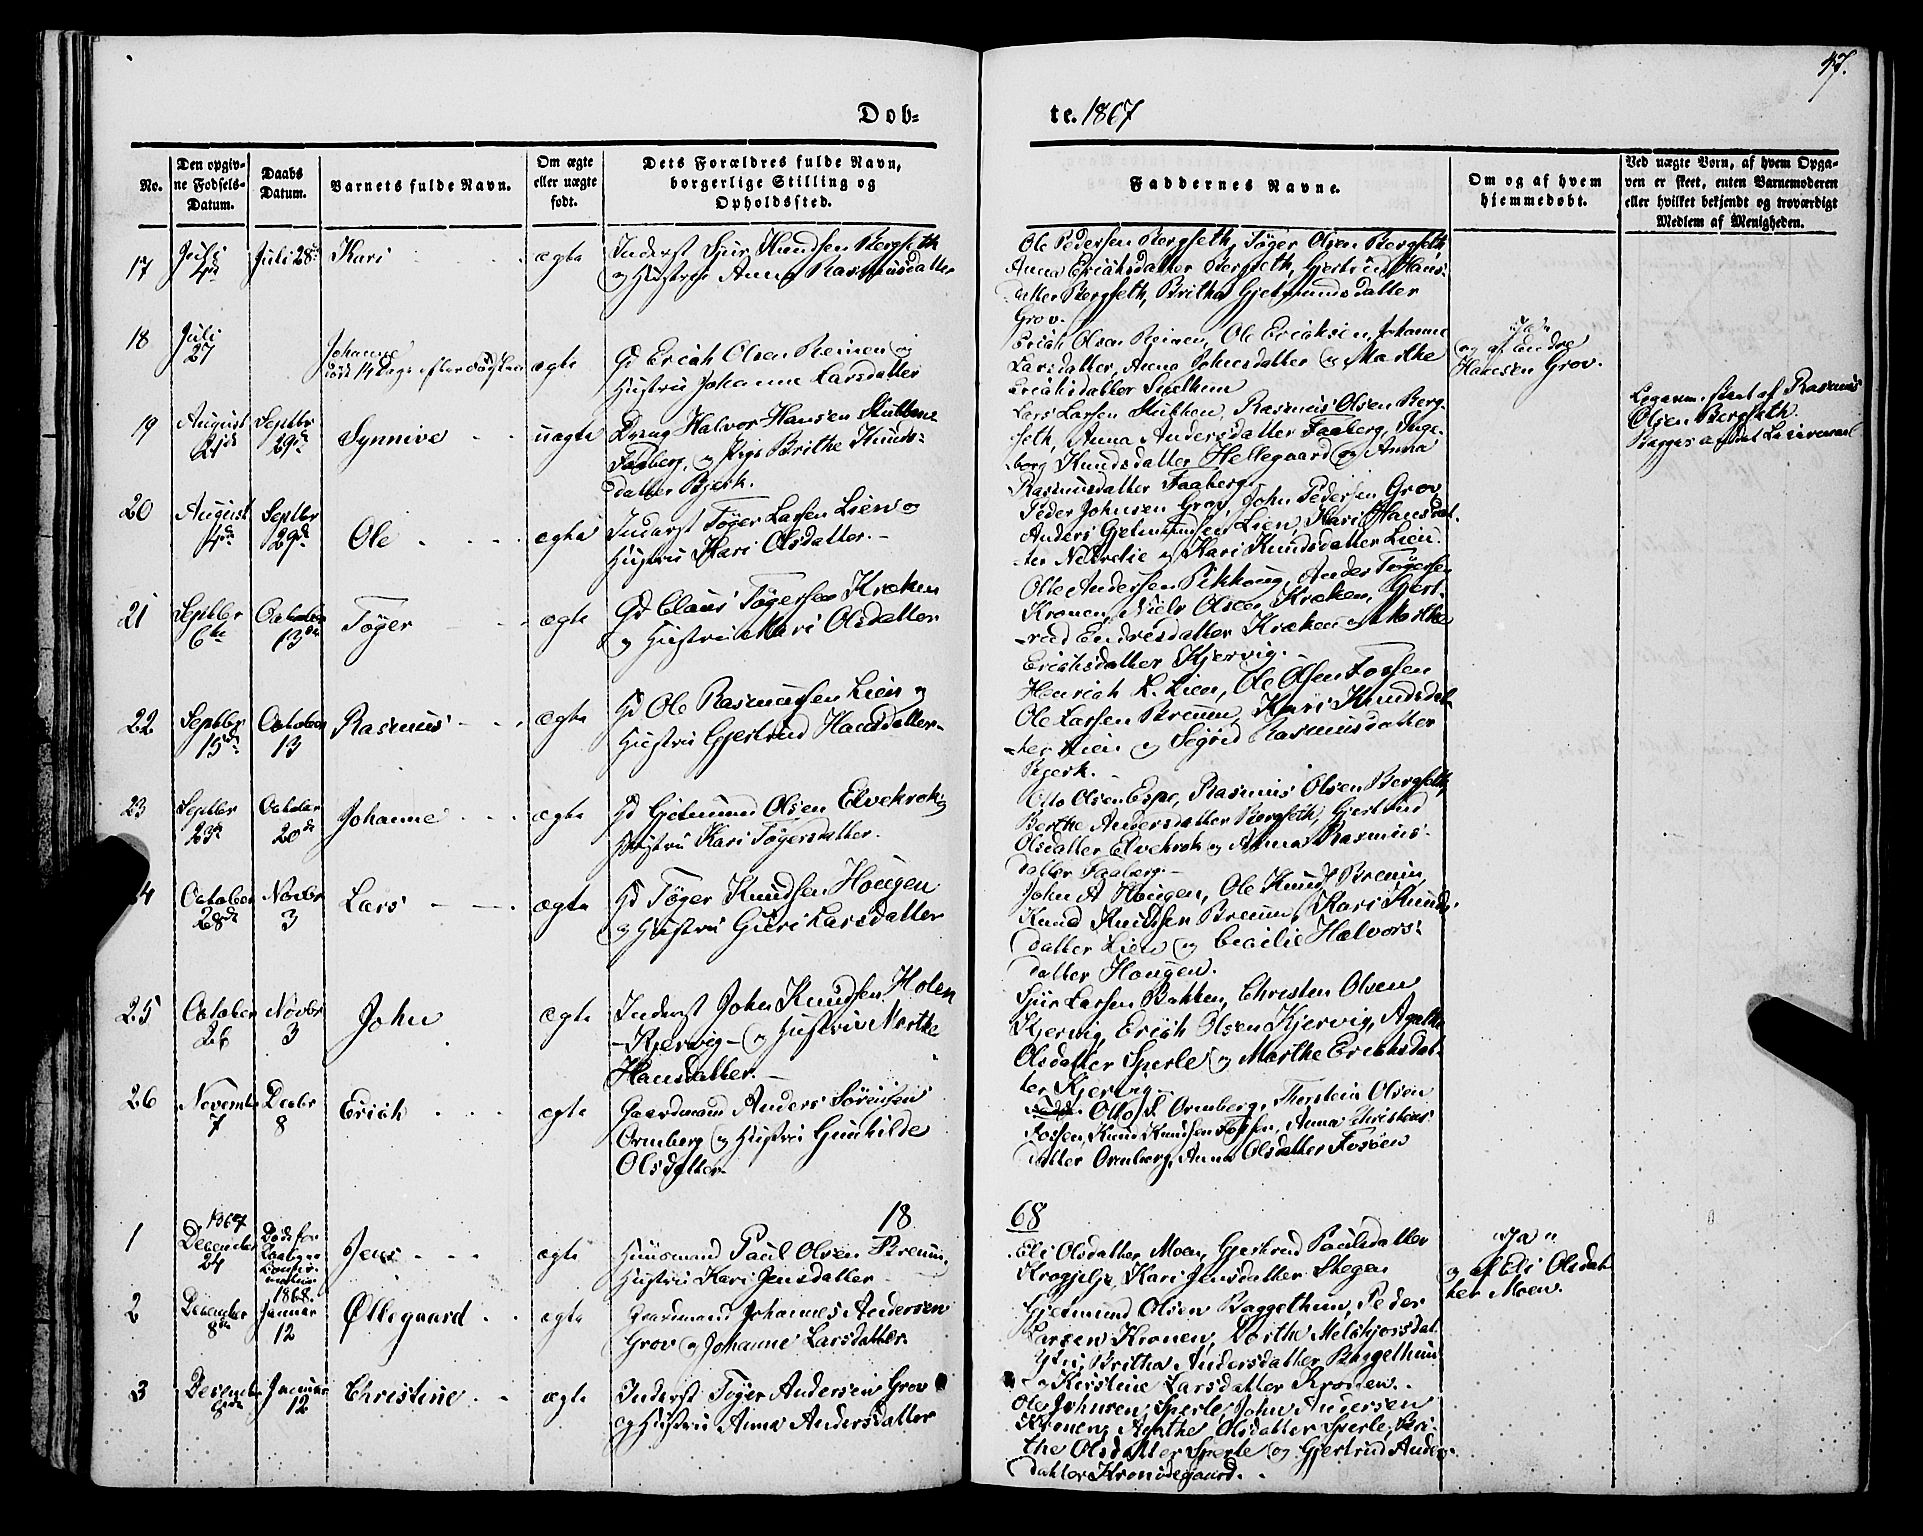 47.
Døb-
te. 1867
No.
Den opgiv-
ne Fødsels-
Datum.
Daabs
Datum.
Barnets fulde Navn.
Om ægte
eller uægte
født.
Dets Forældres fulde Navn,
borgerlige Stilling og
Opholdssted.
Faddernes Navne.
Om og af hvem
hjemmedøbt.
Ved uægte Børn, af hvem Opga-
ven er skeet, enten Barnemoderen
eller hvilket bekjendt og troværdigt
Medlem af Menigheden.
17
Juli
Juli 28
Kari
ægte
Inderst Sjur Knudsen Bergseth
og Hustru Anna Rasmusdatter
Ole Pedersen Bergseth, Tøger Olsen Bergseth,
Anna Erichsdatter Bergseth, Gjertrud Hans-
datter Bergseth, Britha Gjelmundsdatter
Grov.
18
Juli
27
Johanne
død 14 Dage efter
ægte
Gd Erich Olsen Reinen og
Hustru Johanne Larsdatter
Erich Olsen Reinen, Ole Erichsen, Johanne
Larsdatter, Anna Johnsdatter og Marthe
Erichsdatter
Ja
og af Endre
Hansen Grov.
19
August
21de
Septbr
29de
Synnive
uægte
Dreng Halvor Hansen Stubben
Faaberg, og Pige Brithe Knuds-
datter Bjerk.
Lars Larsen Stubben, Rasmus Olsen Berg-
seth, Anna Andersdatter Faaberg, Inge-
borg Knudsdatter Hellegaard og Anna
Rasmusdatter Faaberg.
af Rasmus
Olsen Bergseth
20
August
Septbr
29de
Ole
ægte
Inderst Tøger Larsen Lien og
Hustru Kari Olsdatter.
Peder Johnsen Grov, John Pedersen Grov,
Anders Gjelmundsen Lien, Kari Hansdat-
ter og Kari Knudsdatter Lien.
21
Septbr
6te
October
13de
Tøger
ægte
Gd Claus Tøgersen Kræken
og Hustru Kari Olsdatter
Olle Andersen, Anders Tøgersen
Kronen, Niels Olsen Kræken, Gjert-
rud Endresdatter Kræken og Marthe
Erichsdatter Kjervig.
22
Septbr
15de
October
13
Rasmus
ægte
Gd Ole Rasmussen Lien og
Hustru Gjertrud Hansdatter
Henrich L. Lien, Ole Olsen Fossen
Ole Larsen Breum, Kari Knudsdat-
ter Lien og Segrid Rasmusdatter
Bjerk.
23
Septbr
23de
October
20de
Johanne
ægte
Gd Gjelmund Olsen Elvekrok og
Hustru Kari Tøgersdatter.
Otto Olsen Espe, Rasmus Olsen Bergseth,
Berthe Andersdatter Bergseth, Gjertrud
Olsdatter Elvekrok og Anna Rasmus-
datter Faaberg.
4
October
28de
Novbr
3
Lars
ægte
Gd Tøger Knudsen Hougen
og Hustru Guri Larsdatter
John A Hougen, Ole Knuds Breum,
Knud Knudsen Breum, Kari Knuds-
datter Lien og Cecilie Halvors-
datter Hougen.
25
October
26
Novbr
3
John
ægte
Inderst John Knudsen Holen
-Kjervig- og Hustru Marthe
Hansdatter.
Sjur Larsen Bakken, Christen Olsen
Kjervig, Erich Olsen Kjervig, Agathe
Olsdatter Sperle og Marthe Erichsdat-
ter Kjervig
26
Novemb.
7
Decbr
8
Erich
ægte
Gaardmand Anders Sørensen
Ormberg og Hustru Gunhilde
Olsdatter
Otto S. Ormberg, Thorstein Olsen
Fossen, Knud Knudsen Fossen, Anna Christens-
datter Ormberg, Anna Olsdatter Fosøen
18
68
1
1867
December
24
Død før
Daabens
Confir-
mation
Jens
ægte
Huusmand Paul Olsen Breum,
Hustru Kari Jensdatter
Eli Olsdatter Moen, Gjertrud Paulsdatter
Krogjelje, Kari Jensdatter Skegen
Ja
og af Eli Olsdat-
ter Moen.
2
December
8de
1868.
Januar
12
Øllegaard
ægte
Gaardmand Johannes Andersen
Grov og Johanne Larsdatter
Gjelmund Olsen Baggethun, Peder
Larsen Kronen, Dorthe Melchjorsdat-
ter, Britha Andersdatter Baggethun
og Kirstine Larsdatter Kronen.
3
Decemb.
8de
Januar
12
Christine
ægte
Inderst Tøger Andersen Grov
og Hustru Anna Andersdatter
Ole Johnsen Sperle, John Andersen
Kronen, Agathe Olsdatter Sperle, Bri-
the Olsdatter Sperle og Gjertrud Anders-
datter Kronødegaard.